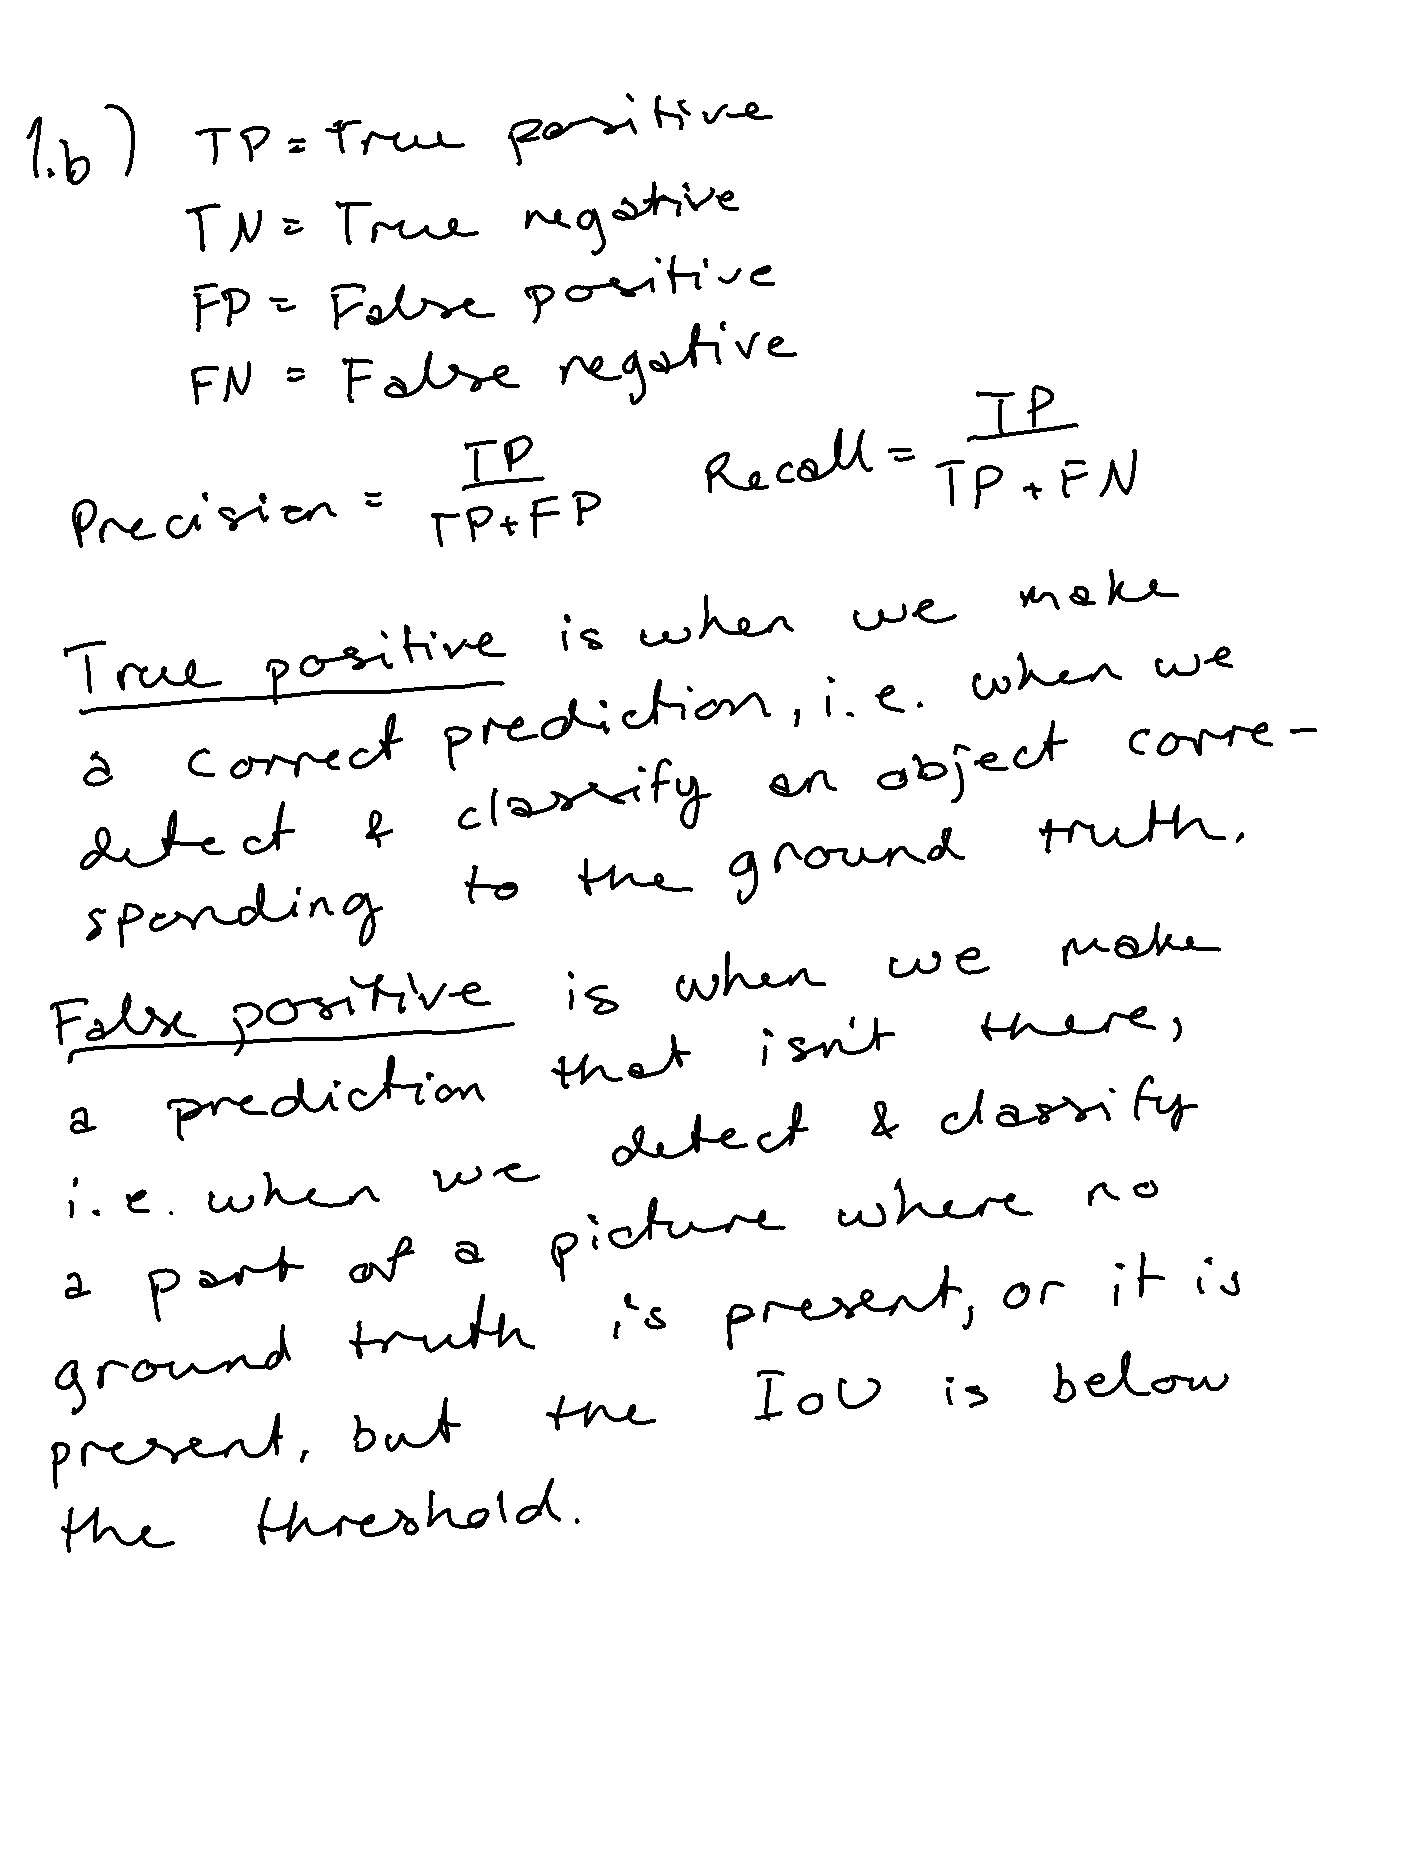 1.b) TP = True positive
TN = True negative
FP = False positive
FN = False negative
Precision = TP / TP + FP   Recall = TP / TP + FN
True positive is when we make
a correct prediction, i.e. when we
detect & classify an object corre-
sponding to the ground truth.
False positive is when we make
a prediction that isn't there,
i.e. when we detect & classify
a part of a picture where no
ground truth is present, or it is
present, but the IoU is below
the threshold.